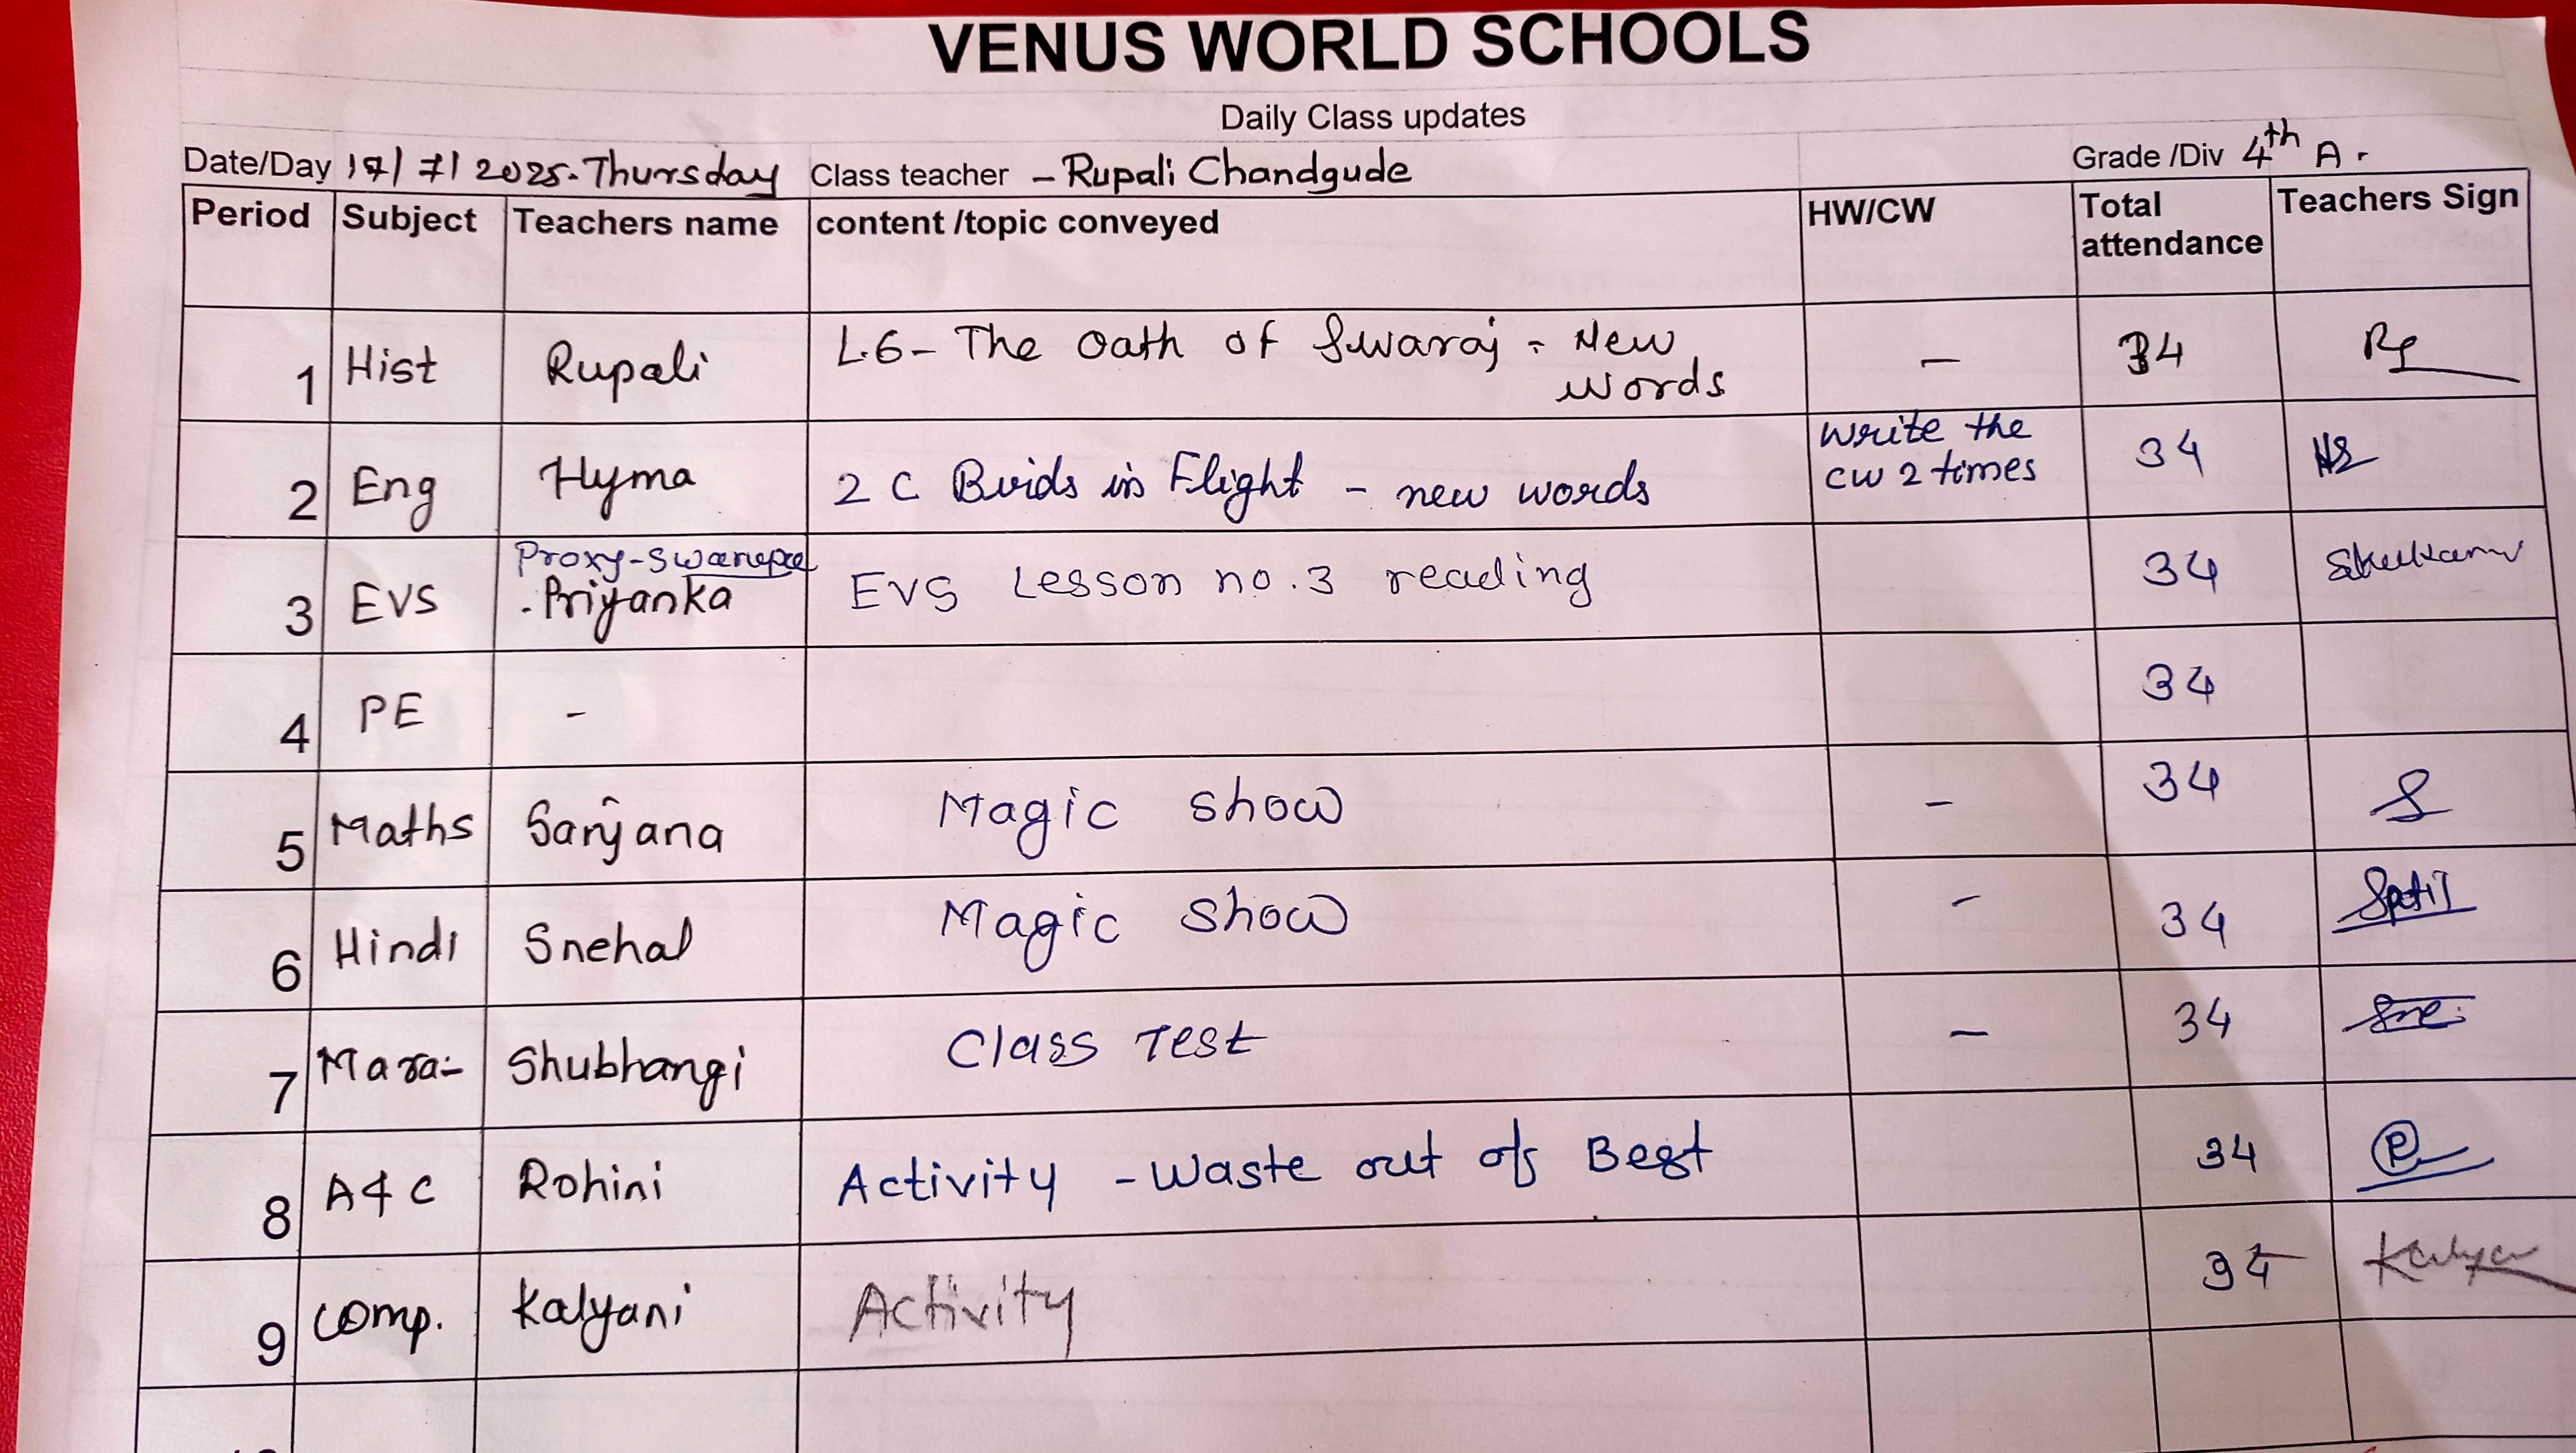 VENUS WORLD SCHOOLS
Daily Class updates
Date/Day 17/7/2025. Thursday Class teacher - Rupali Chandgude Grade /Div 4th A.
Period Subject Teachers name content /topic conveyed HW/CW Total attendance Teachers Sign
1 Hist Rupali L.6- The Oath of Swaraj - New words - 34
2 Eng Hyma 2 C Birds in Flight - new words Write the cw 2 times 34
Proxy-
3 EVS .Priyanka EVS Lesson no.3 reading 34
4 PE - 34
5 Maths Sanjana Magic show - 34 S
6 Hindi Snehal Magic show - 34 Spatil
7 Mara- Shubhangi Class Test - 34
8 A & C Rohini Activity - Waste out of Best 34
9 comp. Kalyani Activity 34